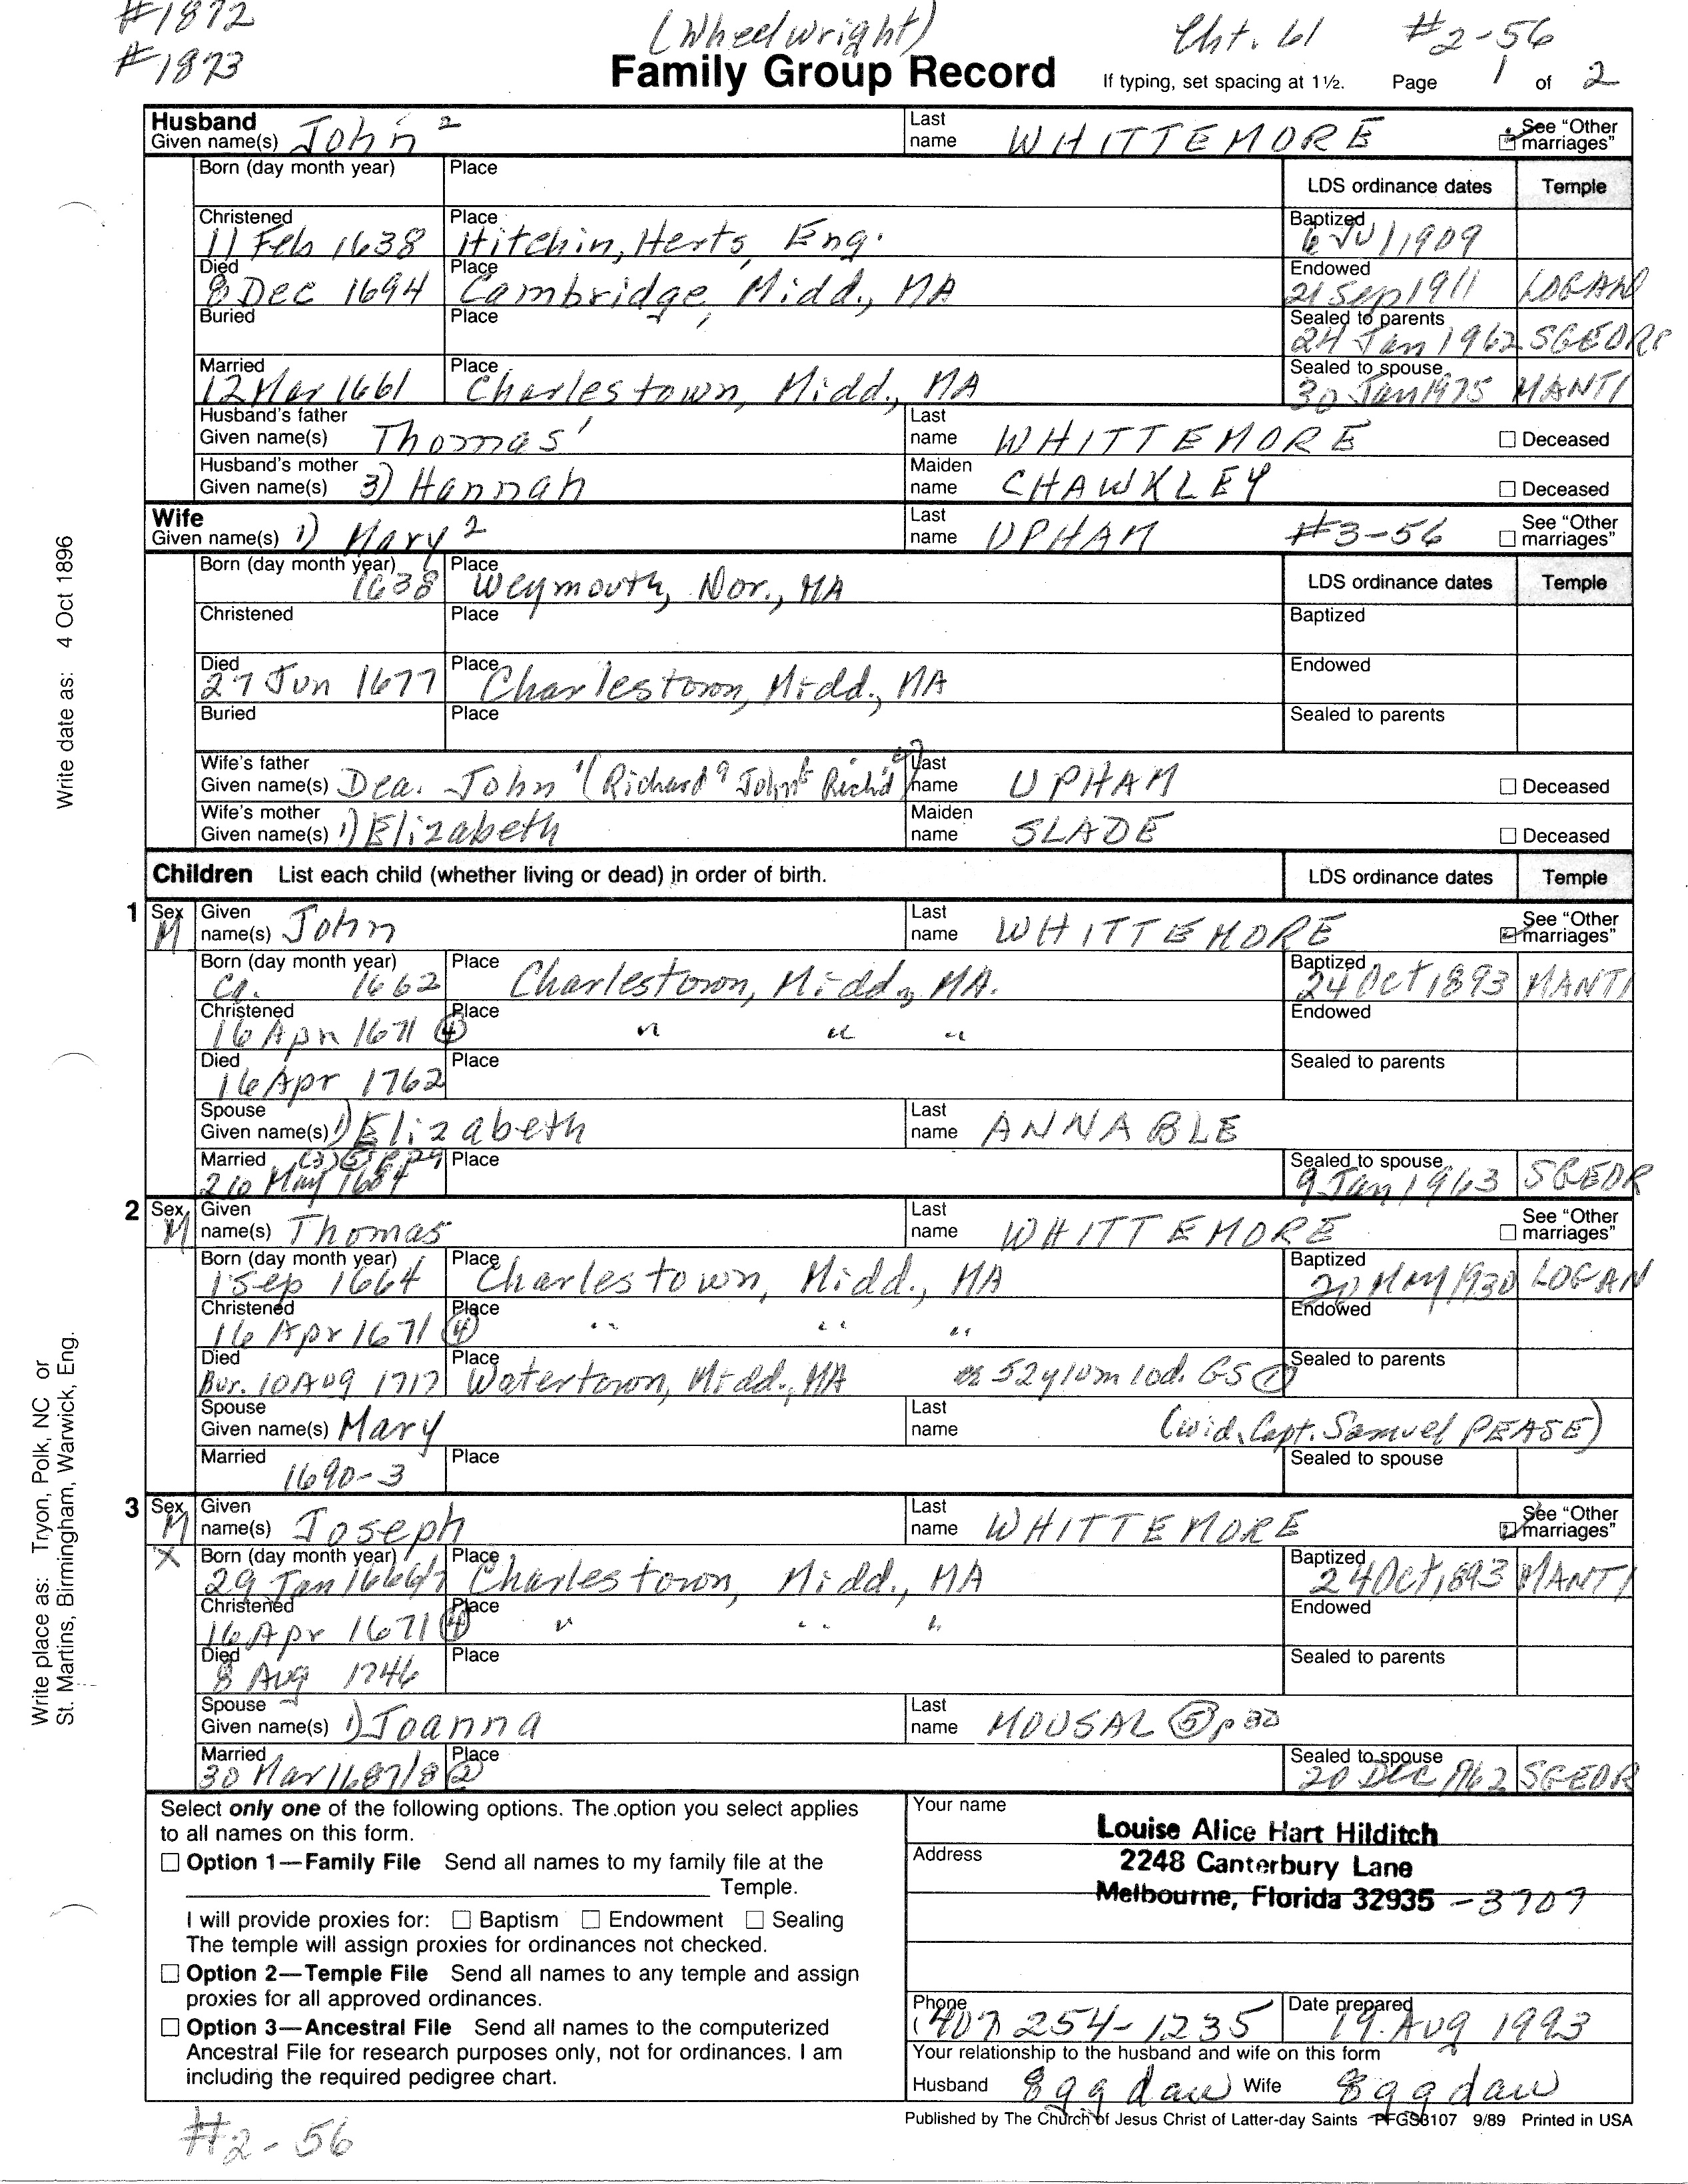 #1872 (Wheelwright) Cht. 61 #2-56
#1873 Family Group Record If typing, set spacing at 1½. Page 1 of 2
Husband
Given name(s) John 2 Last name WHITTEMORE See "Other marriages"
Born (day month year) Place LDS ordinance dates Temple
Christened 11 Feb 1638 Place Hitchin, Herts, Eng. Baptized 6 Jul 1909
Died 8 Dec 1694 Place Cambridge, Midd., MA Endowed 21 Sep 1911 LOGAN
Buried Place Sealed to parents 24 Jan 1962 SGEORG
Married 12 Mar 1661 Place Charlestown, Midd., MA Sealed to spouse 30 Jan 1975 MANTI
Husband's father Given name(s) Thomas 1 Last name WHITTEMORE Deceased
Husband's mother Given name(s) 3) Hannah Maiden name CHAWKLEY Deceased
Wife
Given name(s) 1) Mary 2 Last name UPHAM #3-56 See "Other marriages"
Born (day month year) 1638 Place Weymouth, Nor., MA LDS ordinance dates Temple
Christened Place Baptized
Died 27 Jun 1677 Place Charlestown, Midd., MA Endowed
Buried Place Sealed to parents
Wife's father Given name(s) Dea. John 1 (Richard Last name UPHAM Deceased
Wife's mother Given name(s) 1) Elizabeth Maiden name SLADE Deceased
Children List each child (whether living or dead) in order of birth. LDS ordinance dates Temple
1 Sex M Given name(s) John Last name WHITTEMORE See "Other marriages"
Born (day month year) Ca. 1662 Place Charlestown, Midd., MA. Baptized 24 Oct 1893 MANTI
Christened 16 Apr 1671 ④ Place " " " Endowed
Died 16 Apr 1762 Place Sealed to parents
Spouse Given name(s) 1) Elizabeth Last name ANNABLE
Married 26 May 1684 Place Sealed to spouse 9 Jan 1963 SGEOR
2 Sex M Given name(s) Thomas Last name WHITTEMORE See "Other marriages"
Born (day month year) 1 Sep 1664 Place Charlestown, Midd., MA Baptized 20 May 1930 LOGAN
Christened 16 Apr 1671 ④ Place " " " Endowed
Died Bur. 10 Aug 1717 Place Watertown, Midd., MA 52y10m10d. GS ① Sealed to parents
Spouse Given name(s) Mary Last name (wid. Capt. Samuel PEASE)
Married 1690-3 Place Sealed to spouse
3 Sex M Given name(s) Joseph Last name WHITTEMORE See "Other marriages"
X Born (day month year) 29 Jan 1666/7 Place Charlestown, Midd., MA Baptized 24 Oct 1893 MANTI
Christened 16 Apr 1671 ④ Place " " " Endowed
Died 8 Aug 1746 Place Sealed to parents
Spouse Given name(s) 1) Joanna Last name MOUSAL ⑤
Married 30 Mar 1687/8 ② Place Sealed to spouse 20 DEC 1962 SGEOR
Select only one of the following options. The option you select applies
to all names on this form.
Option 1—Family File Send all names to my family file at the
Temple.
I will provide proxies for: Baptism Endowment Sealing
The temple will assign proxies for ordinances not checked.
Option 2—Temple File Send all names to any temple and assign
proxies for all approved ordinances.
Option 3—Ancestral File Send all names to the computerized
Ancestral File for research purposes only, not for ordinances. I am
including the required pedigree chart.
Your name Louise Alice Hart Hilditch
Address 2248 Canterbury Lane
Melbourne, Florida 32935 -3707
Phone (407 254-1235 Date prepared 19 Aug 1993
Your relationship to the husband and wife on this form
Husband 8 g g dau Wife 8 g g dau
Published by The Church of Jesus Christ of Latter-day Saints PFGS3107 9/89 Printed in USA
#2-56
Write date as: 4 Oct 1896
Write place as: Tryon, Polk, NC or
St. Martins, Birmingham, Warwick, Eng.